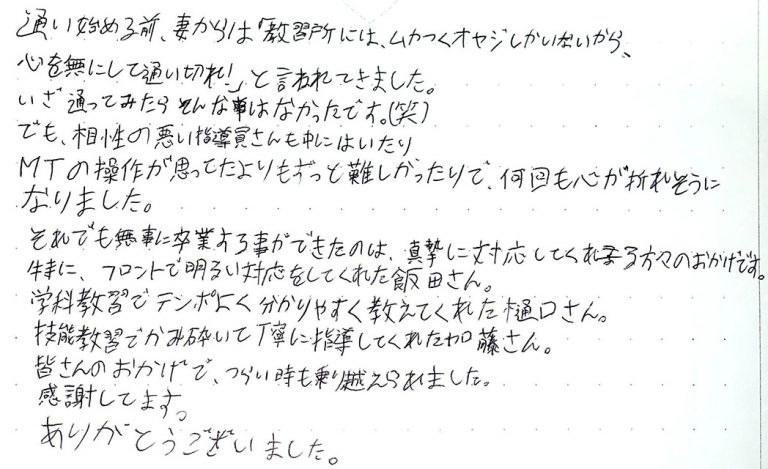 通い始める前、妻からは「教習所には、ムカつくオヤジしかいないから、
心を無にして通い切れ!」と言われてきました。
いざ通ってみたらそんな事はなかったです。(笑)
でも、相性の悪い指導員さんも中にはいたり
MTの操作が思ってたよりもずっと難しかったりで、何回も心が折れそうに
なりました。
それでも無事に卒業する事ができたのは、真摯に対応してくれる方々のおかげです。
特に、フロントで明るい対応をしてくれた飯田さん。
学科教習でテンポよく分かりやすく教えてくれた樋口さん。
技能教習でかみ砕いて丁寧に指導してくれた加藤さん。
皆さんのおかげで、つらい時も乗り越えられました。
感謝してます。
ありがとうございました。